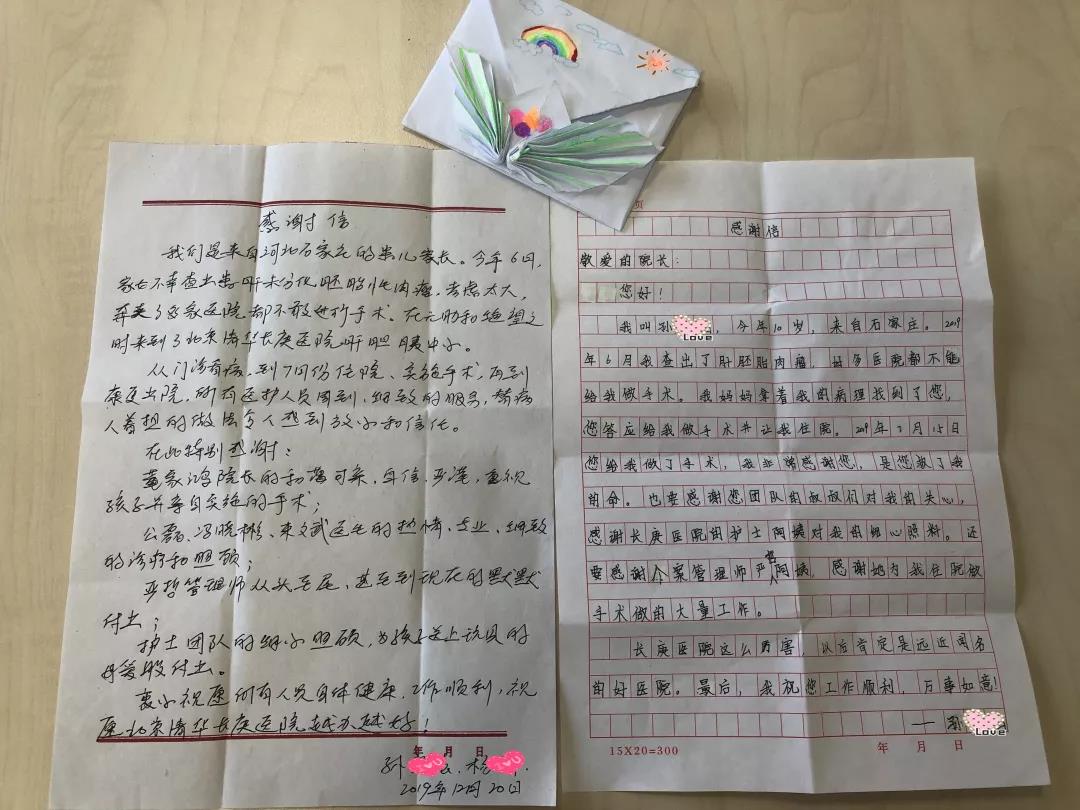 感谢信
我们是来自河北石家庄的患儿家长。今年6月,
家长不幸查出患肝未分化胚胎性肉瘤,
却不敢进行手术。在无助和绝望之
时来到了北京清华长庚医院肝胆胰中心。
从门诊看病,到7月份住院、实施手术,再到
康复出院,所有医护人员周到、细致的服务,替病
人着想的做法令人感到放心和信任。
在此特别感谢:
董家鸿院长的和蔼可亲,自信、严谨,重视
孩子并亲自实施的手术;
冯晓彬、医生的热情、专业、细致
的诊疗和照顾;
管理师从头至尾、甚至到现在的默默
付出;
护士团队的细心照顾,为孩子送上玩具的
付出。
衷心祝愿所有人员身体健康,工作顺利,祝
愿北京清华长庚医院越办越好!
年 月 日
孙
2019年12月20日
页
感谢信
敬爱的院长:
您好!
我叫孙 ,今年10岁,来自石家庄。2019
年6月我查出了肝胚胎肉瘤,好多医院都不能
给我做手术。我妈妈拿着我的病理找到了您,
您答应给我做手术并让我住院。2019年7月15日
您给我做了手术,我非常感谢您,是您救了我
的命。也要感谢您团队的叔叔们对我的关心,
感谢长庚医院的护士阿姨对我的细心照料。还
要感谢个案管理师严哲阿姨,感谢她为我住院做
手术做的大量工作。
长庚医院这么厉害,以后肯定是远近闻名
的好医院。最后,我祝您工作顺利,万事如意!
Love
15X20=300 年 月 日